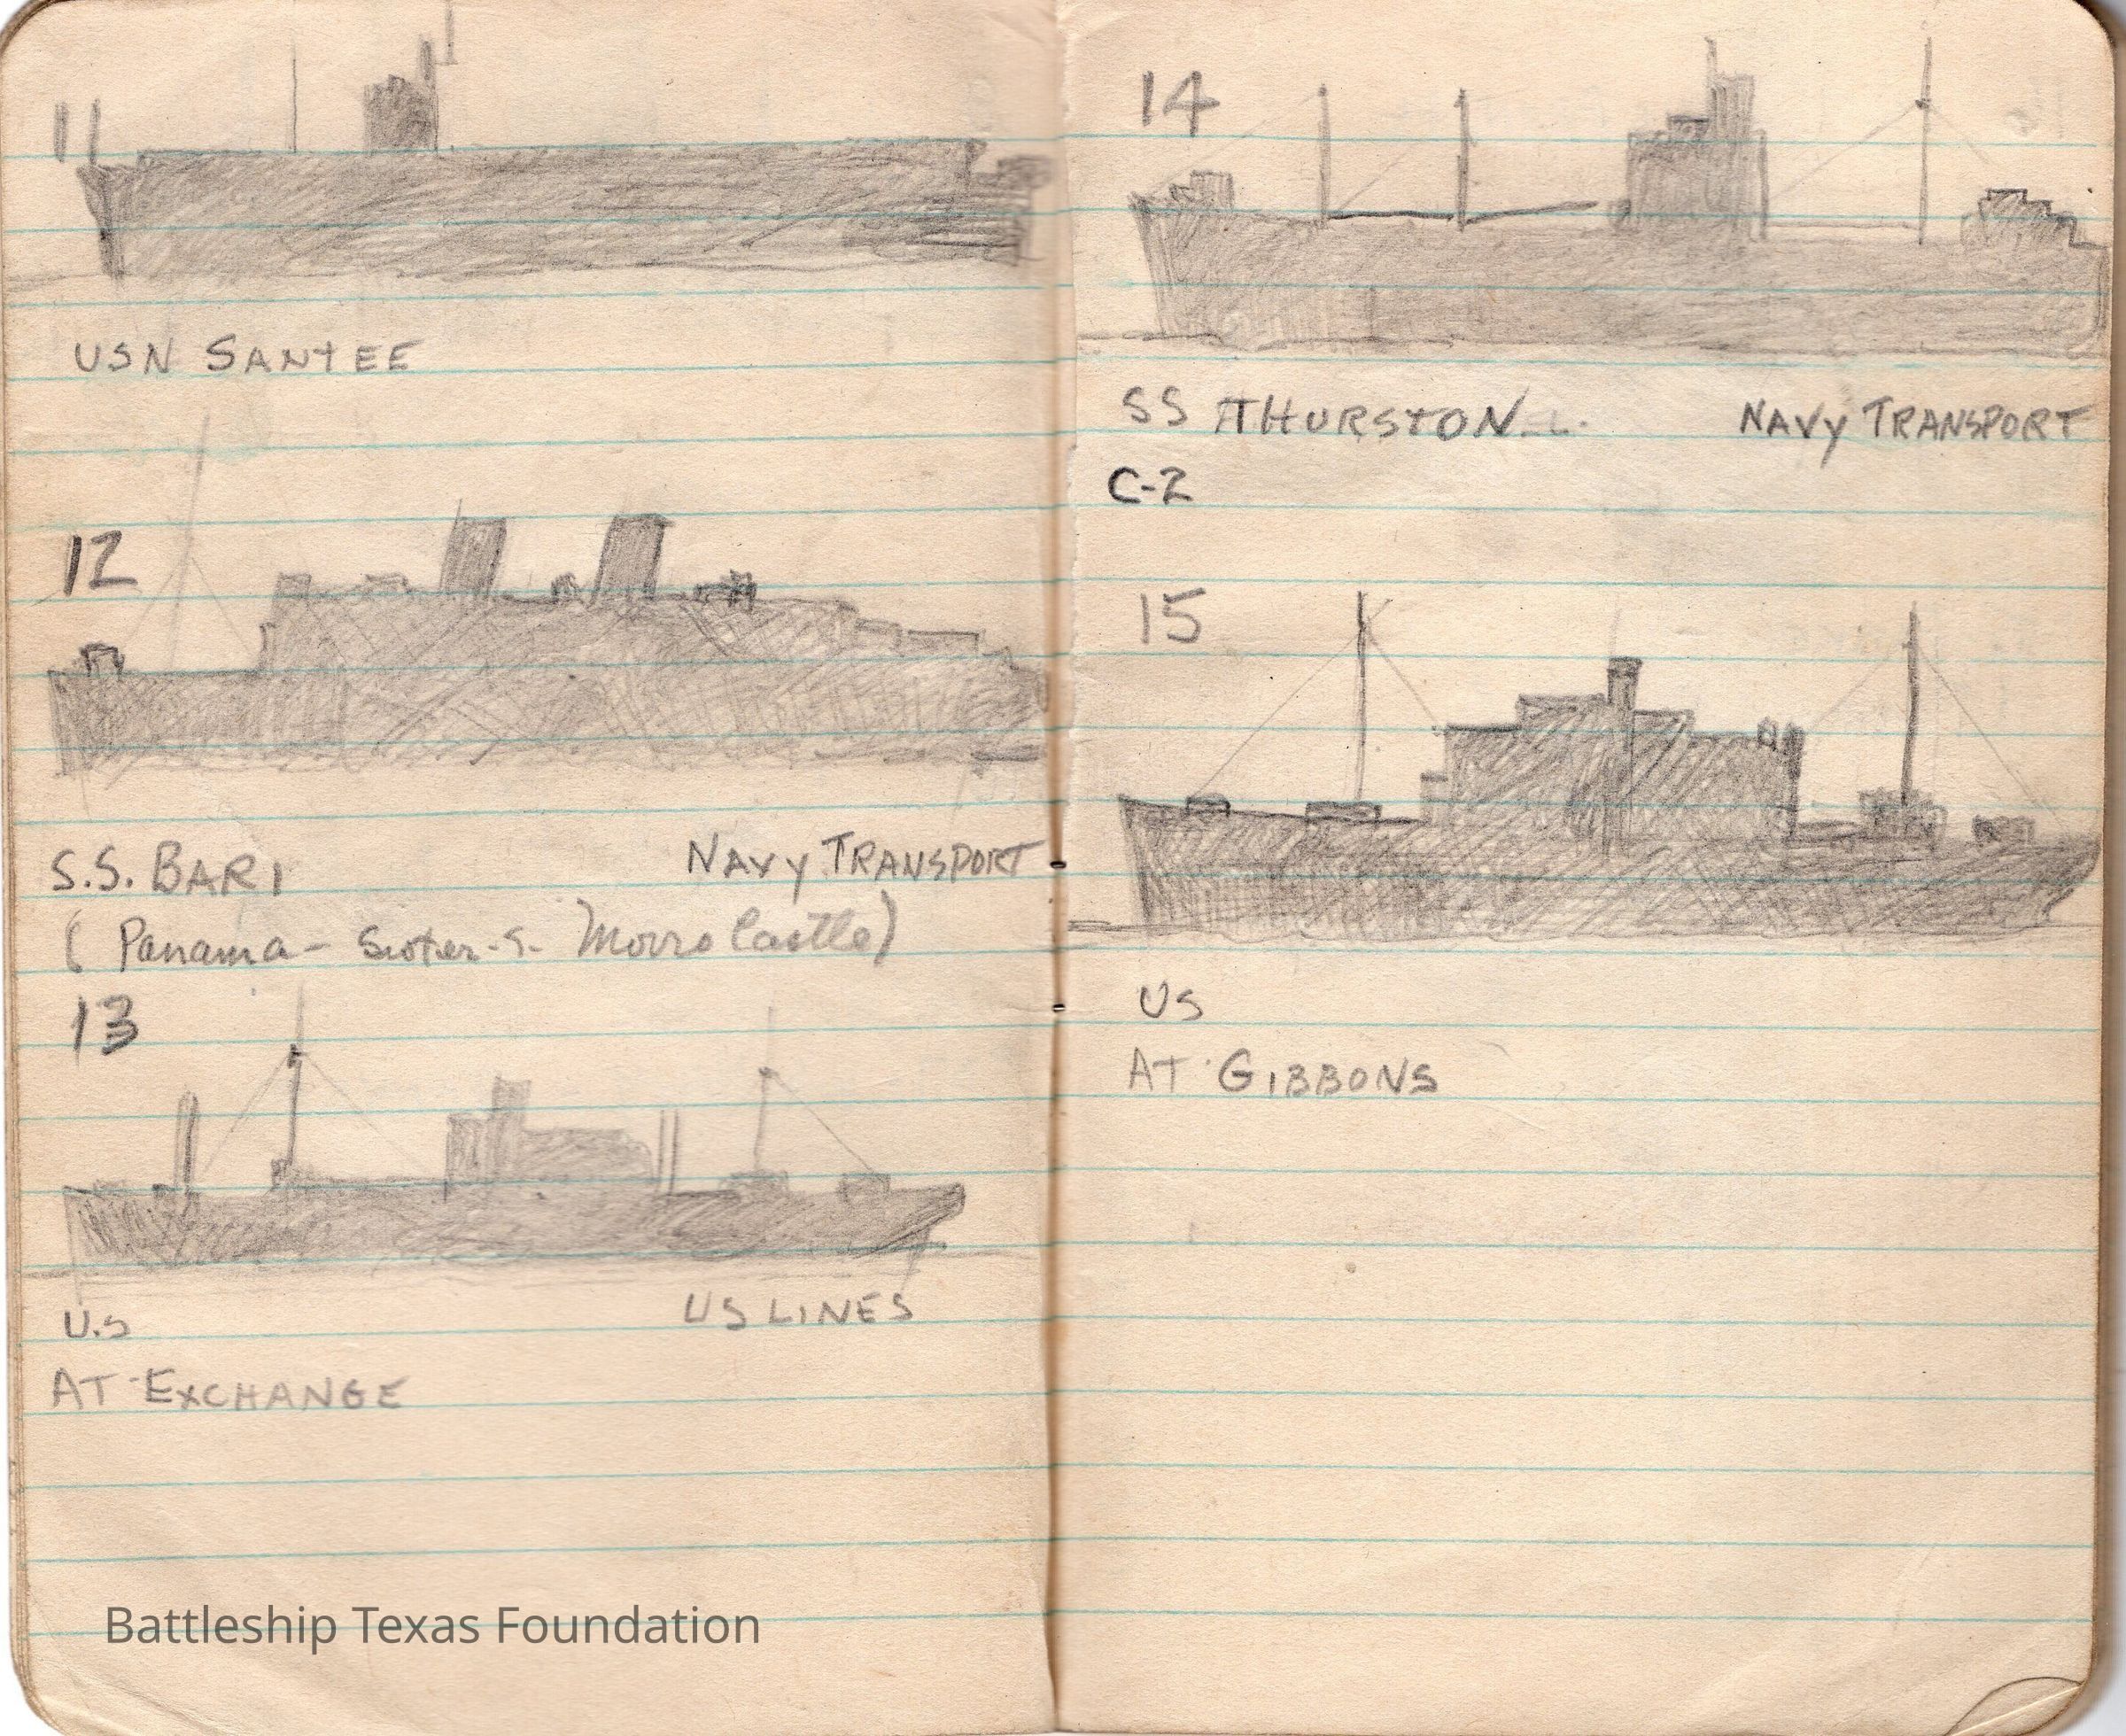 11
USN SANTEE
12
S.S. BARI NAVY TRANSPORT
(Panama - S. Morro Castle)
13
U.S US LINES
AT EXCHANGE
14
SS THURSTON NAVY TRANSPORT
C-2
15
US
AT GIBBONS
Battleship Texas Foundation